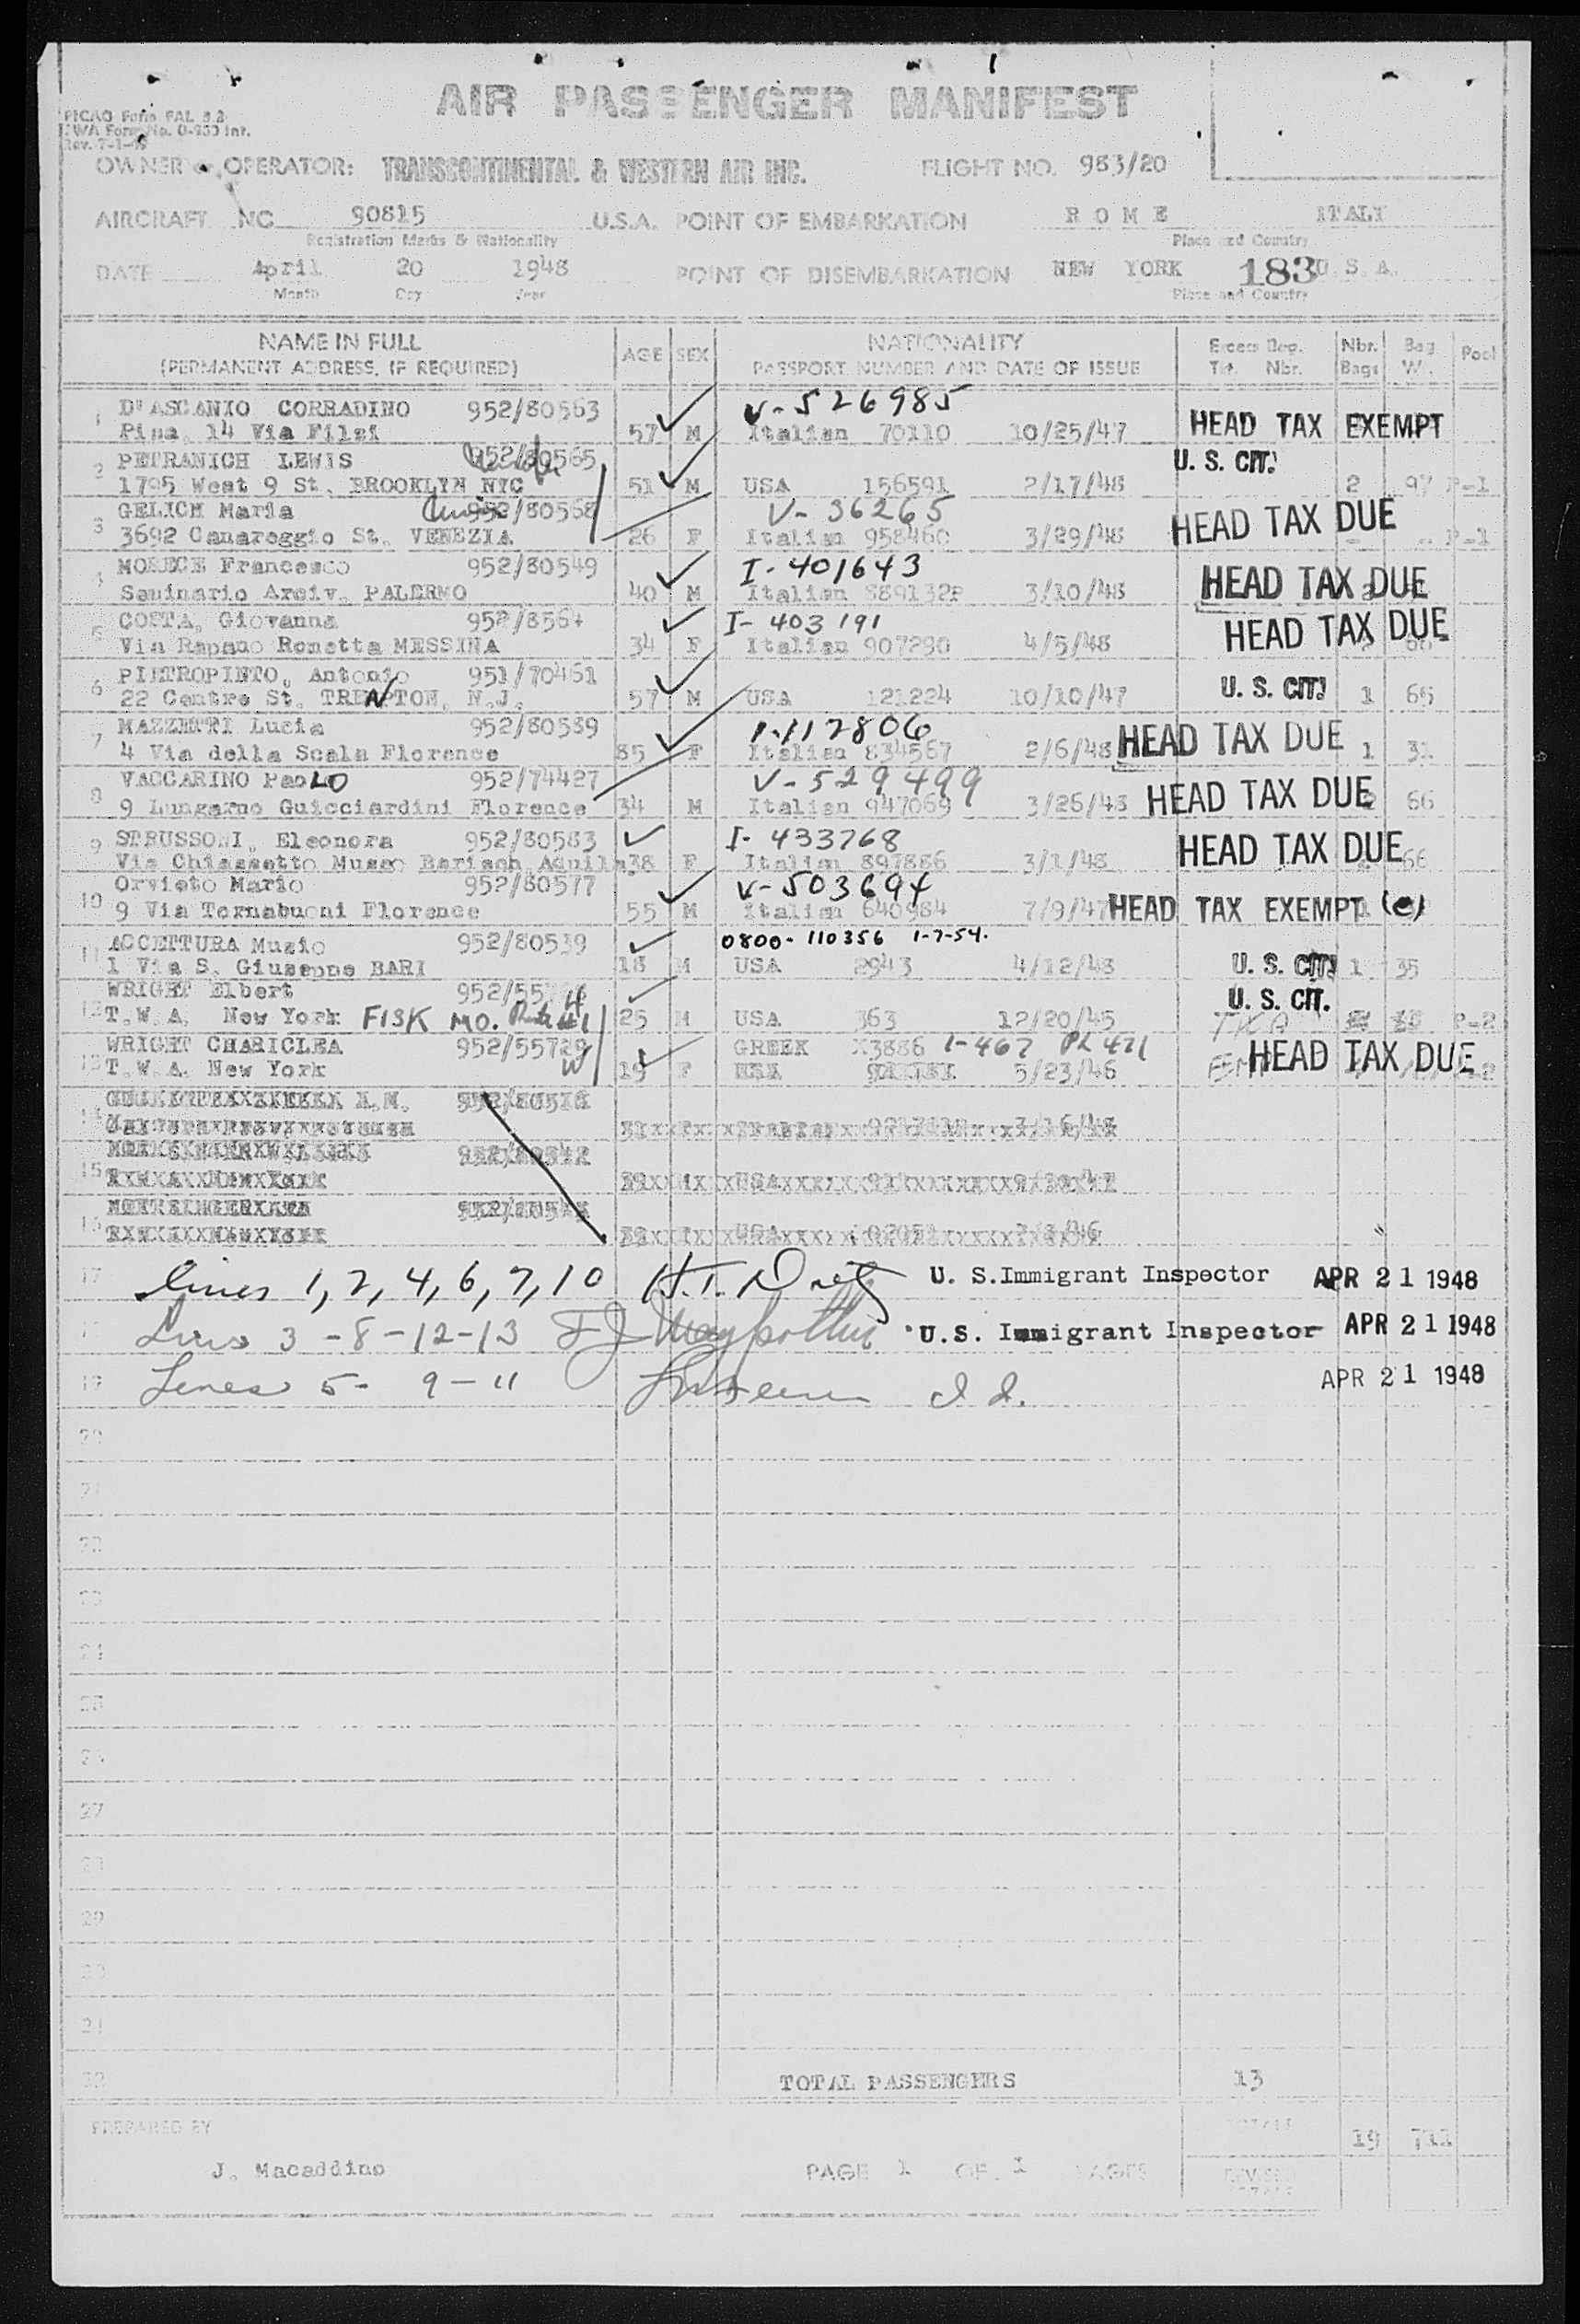 AIR PASSENGER MANIFEST
PICAO Form PAL 3.2
TWA Form No. 0-933 Int.
Rev. 7-1-
OWNER OPERATOR: TRANSCONTINENTAL & WESTERN AIR INC. FLIGHT NO. 983/20
AIRCRAFT NC 90815 U.S.A. POINT OF EMBARKATION R O M E ITALY
Registration Marks & Nationality Place and Country
DATE April 20 1948 POINT OF DISEMBARKATION NEW YORK 183 U.S.A.
Month Day Year Place and Country
NAME IN FULL AGE SEX NATIONALITY Excess Bag. Nbr. Bag Pool
(PERMANENT ADDRESS, IF REQUIRED) PASSPORT NUMBER AND DATE OF ISSUE Tkt. Nbr. Bags Wt.
1 D'ASCANIO CORRADINO 952/80563 V-526985
Pisa, 14 Via Filzi 57 M Italian 70110 10/25/47 HEAD TAX EXEMPT
2 PETRANICH LEWIS 952/80565 U. S. CIT.
1795 West 9 St. BROOKLYN NYC 51 M USA 156591 2/17/48 2 97 P-1
3 GELICH Maria 952/80568 V-36265
3692 Canareggio St. VENEZIA 26 F Italian 958460 3/29/48 HEAD TAX DUE P-1
4 Francesco 952/80549 I-401643
Seminario Arciv. PALERMO 40 M Italian 889132P 3/10/48 HEAD TAX DUE
5 COSTA, Giovanna 952/8564 I-403191
Via Rapano Rometta MESSINA 34 F Italian 907290 4/5/48 HEAD TAX DUE
6 PIETROPINTO, Antonio 951/70461
22 Centre St. TRENTON, N.J. 57 M USA 121224 10/10/47 U. S. CIT. 1 65
7 MAZZETTI Lucia 952/80589 I-112806
4 Via della Scala Florence 85 F Italian 834567 2/6/48 HEAD TAX DUE 1 31
8 VACCARINO PaoLO 952/74427 V-529499
9 Lungarno Guicciardini Florence 34 M Italian 947069 3/26/48 HEAD TAX DUE 2 66
9 STRUSSONI, Eleonora 952/80583 I-433768
Via Chiassetto Musso Barisch Aquila 38 F Italian 897886 3/1/48 HEAD TAX DUE 66
10 Orvieto Mario 952/80577 V-503694
9 Via Tornabuoni Florence 55 M Italian 640984 7/9/47 HEAD TAX EXEMPT (e)
11 ACCETTURA Muzio 952/80539 0800-110356 1-7-54.
1 Via S. Giuseppe BARI 18 M USA 2943 4/12/48 U. S. CIT. 1 35
12 WRIGHT Elbert U. S. CIT.
T.W.A. New York FISK MO. 25 M USA 363 12/20/45 P-2
13 WRIGHT CHARICLEA 952/55729 GREEK X3886 I-467 PL 471
T.W.A. New York 19 F 5/23/46 HEAD TAX DUE
14
15
16
17 Lines 1, 2, 4, 6, 7, 10 U. S. Immigrant Inspector APR 21 1948
18 Lines 3 - 8 - 12 - 13 U.S. Immigrant Inspector APR 21 1948
19 Lines 5 - 9 - 11 I. I. APR 21 1948
20
21
22
23
24
25
26
27
28
29
30
31
32 TOTAL PASSENGERS 13
PREPARED BY TOTALS 19 711
J. Macaddino PAGE 1 OF 1 PAGES REVISED
TOTALS